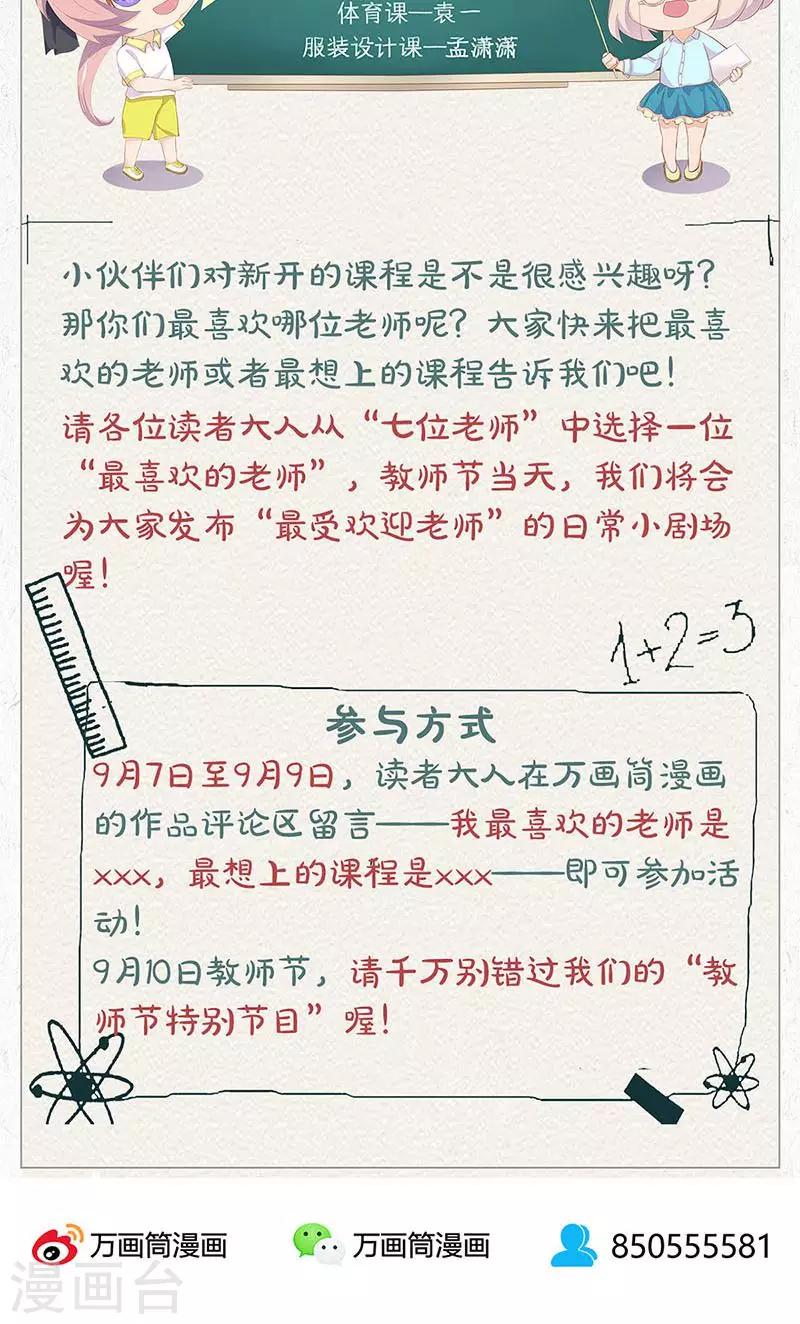 体育课—袁一
服装设计课—孟潇潇
小伙伴们对新开的课程是不是很感兴趣呀?
那你们最喜欢哪位老师呢?大家快来把最喜
欢的老师或者最想上的课程告诉我们吧!
请各位读者大人从“七位老师”中选择一位
“最喜欢的老师”,教师节当天,我们将会
为大家发布“最受欢迎老师”的日常小剧场
喔!
1+2=3
参与方式
9月7日至9月9日,读者大人在万画筒漫画
的作品评论区留言——我最喜欢的老师是
xxx,最想上的课程是xxx——即可参加活
动!
9月10日教师节,请千万别错过我们的“教
师节特别节目”喔!
万画筒漫画
万画筒漫画
850555581
漫画台